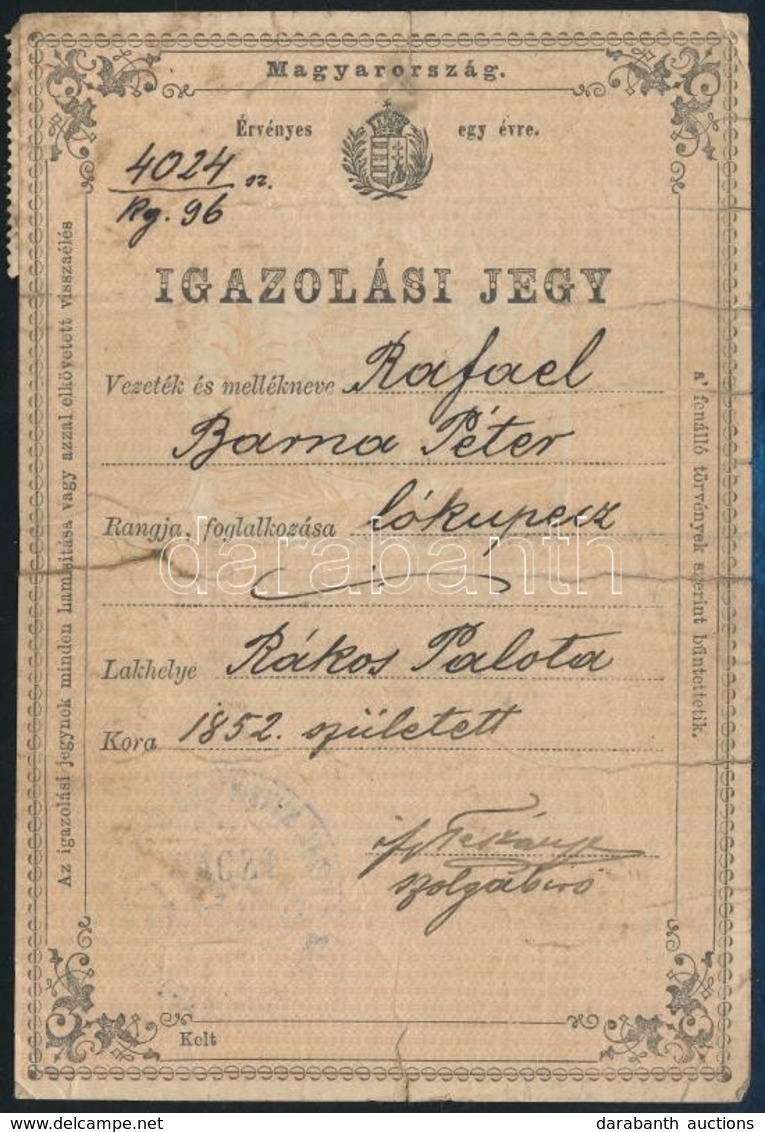 Magyarország.
Érvényes egy évre.
4024 sz.
kg. 96
IGAZOLÁSI JEGY
Vezeték és mellékneve Rafael
Barna Péter
Rangja, foglalkozása lókupecz
Lakhelye Rákos Palota
Kora 1852. született
szolgabiró
Kelt
Az igazolási jegynek minden hamisitása vagy azzal elkövetett visszaélés
a' fenálló törvények szerint büntettetik.
darabanth
darabanth auctions